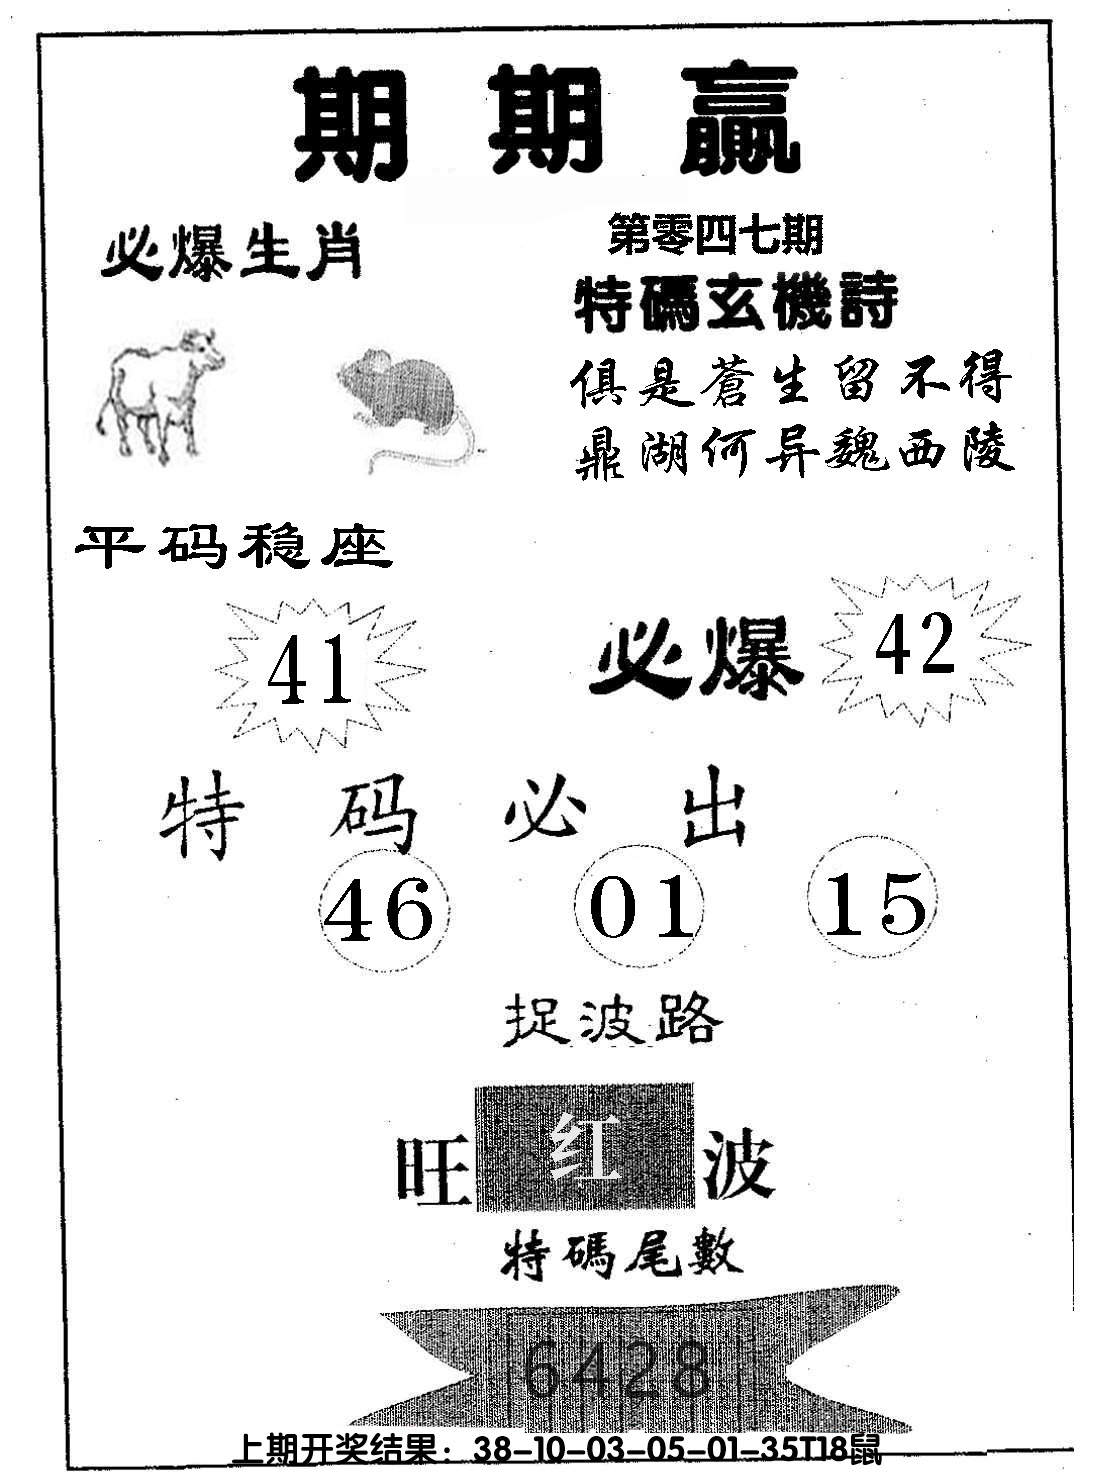 期期赢
必爆生肖
第零四七期
特碼玄機詩
俱是蒼生留不得
鼎湖何异魏西陵
平码稳座
41
必爆 42
特码必出
46 01 15
捉波路
旺 红 波
特碼尾數
6428
上期开奖结果：38-10-03-05-01-35T18鼠